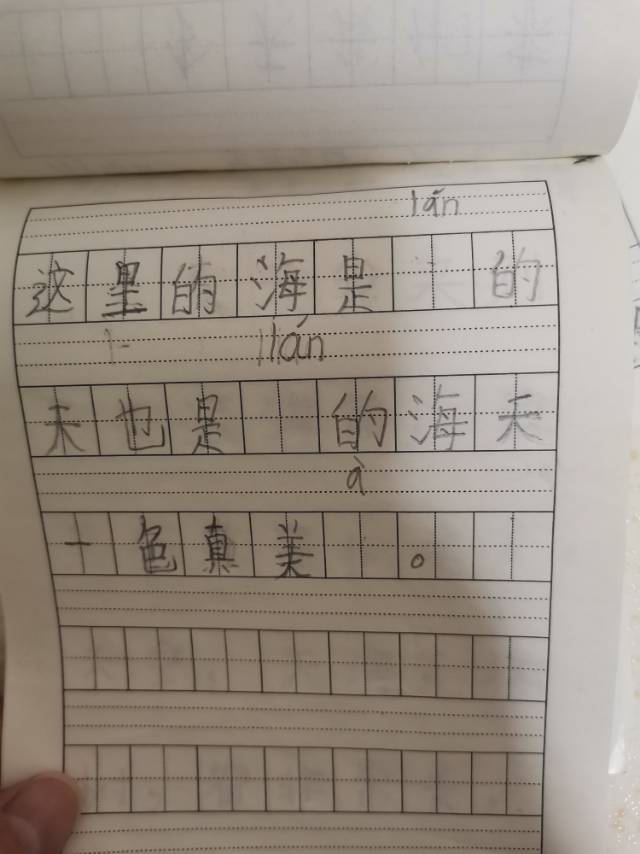 lán
这里的海是 的
lán
天也是 的海天
à
一色真美 。